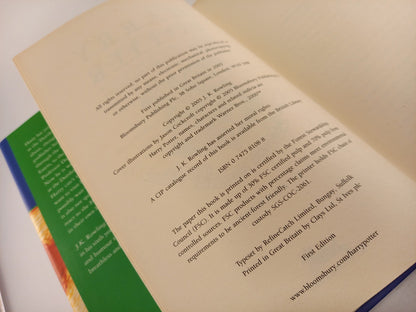 All rights reserved; no part of this publication may be
transmitted by any means, electronic, mechanical, photocopying
or otherwise, without the prior permission of the publisher
First published in Great Britain in 2005
Bloomsbury Publishing Plc, 38 Soho Square, London, W1D 3HB
Copyright © 2005 J. K. Rowling
Cover illustrations by Jason Cockcroft copyright © 2005 Bloomsbury Publishing
Harry Potter, names, characters and related indicia are
copyright and trademark Warner Bros., 2000™
J. K. Rowling has asserted her moral rights
A CIP catalogue record of this book is available from the British Library
ISBN 0 7475 8108 8
The paper this book is printed on is certified by the Forest Stewardship
Council (FSC). It is made up of 30% FSC certified pulp and 70% pulp from
controlled sources. FSC products with percentage claims meet
requirements to be ancient forest friendly. The printer holds FSC chain of
custody SGS-COC-2061.
Typeset by RefineCatch Limited, Bungay, Suffolk
Printed in Great Britain by Clays Ltd, St Ives plc
First Edition
www.bloomsbury.com/harrypotter
J.K. Rowling